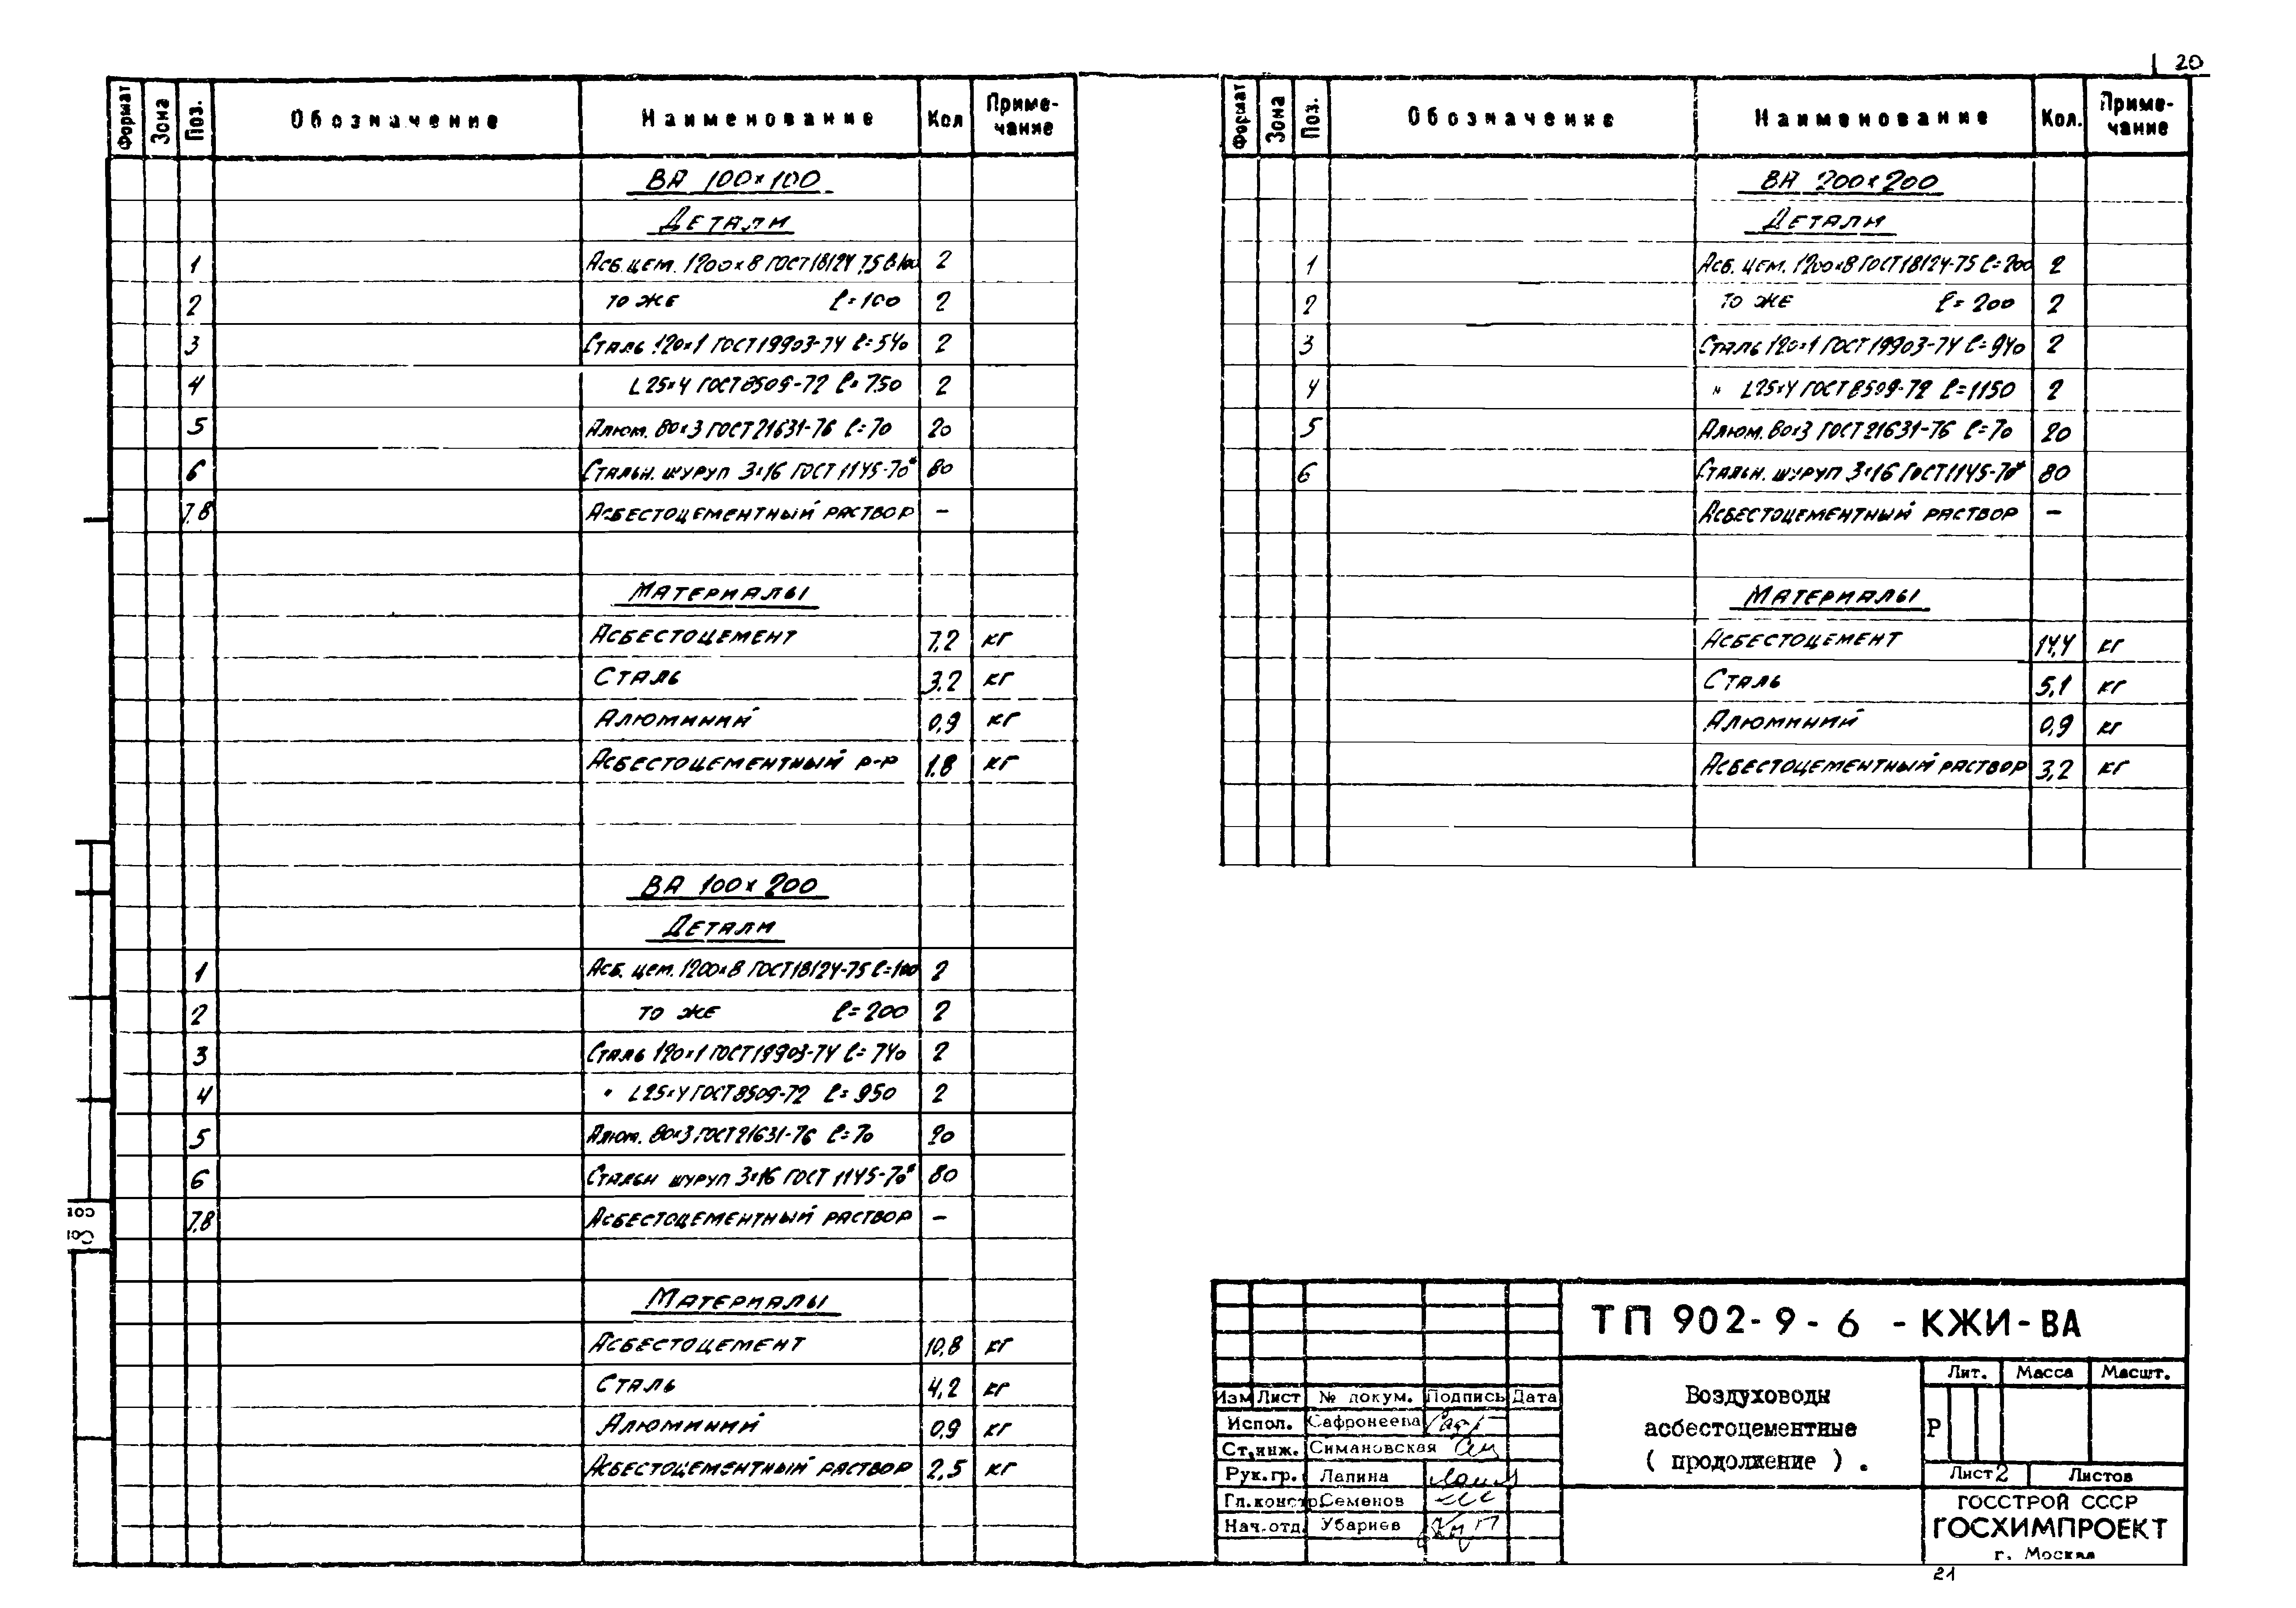 20
Формат Зона Поз. Обозначение Наименование Кол Приме-чание
ВА 100×100
Детали
1 Асб. цем. 1200×8 ГОСТ 18124-75 ℓ=100 2
2 то же ℓ=100 2
3 Сталь 120×1 ГОСТ 19903-74 ℓ=540 2
4 L25×4 ГОСТ 8509-72 ℓ=750 2
5 Алюм. 80×3 ГОСТ 21631-76 ℓ=70 20
6 Стальн. шуруп 3×16 ГОСТ 1145-70* 80
7,8 Асбестоцементный раствор –
Материалы
Асбестоцемент 7,2 кг
Сталь 3,2 кг
Алюминий 0,9 кг
Асбестоцементный р-р 1,8 кг
ВА 100×200
Детали
1 Асб. цем. 1200×8 ГОСТ 18124-75 ℓ=100 2
2 то же ℓ=200 2
3 Сталь 120×1 ГОСТ 19903-74 ℓ=740 2
4 " L25×4 ГОСТ 8509-72 ℓ=950 2
5 Алюм. 80×3 ГОСТ 21631-76 ℓ=70 20
6 Стальн шуруп 3×16 ГОСТ 1145-70* 80
7,8 Асбестоцементный раствор –
Материалы
Асбестоцемент 10,8 кг
Сталь 4,2 кг
Алюминий 0,9 кг
Асбестоцементный раствор 2,5 кг
Формат Зона Поз. Обозначение Наименование Кол. Приме-чание
ВА 200×200
Детали
1 Асб. цем. 1200×8 ГОСТ 18124-75 ℓ=200 2
2 то же ℓ=200 2
3 Сталь 120×1 ГОСТ 19903-74 ℓ=940 2
4 " L25×4 ГОСТ 8509-72 ℓ=1150 2
5 Алюм. 80×3 ГОСТ 21631-76 ℓ=70 20
6 Стальн. шуруп 3×16 ГОСТ 1145-70* 80
Асбестоцементный раствор –
Материалы
Асбестоцемент 14,4 кг
Сталь 5,1 кг
Алюминий 0,9 кг
Асбестоцементный раствор 3,2 кг
ТП 902-9-6 -КЖИ-ВА
Изм Лист № докум. Подпись Дата
Испол. Сафронеева
Ст.инж. Симановская
Рук.гр. Лапина
Гл.констр. Семенов
Нач.отд. Убариев
Воздуховоды
асбестоцементные
( продолжение ) .
Лит. Масса Масшт.
Р
Лист 2 Листов
ГОССТРОЙ СССР
ГОСХИМПРОЕКТ
г. Москва
21